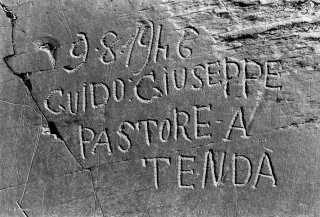 9·8·1946
GUIDO·GIUSEPPE
PASTORE·A
TENDA